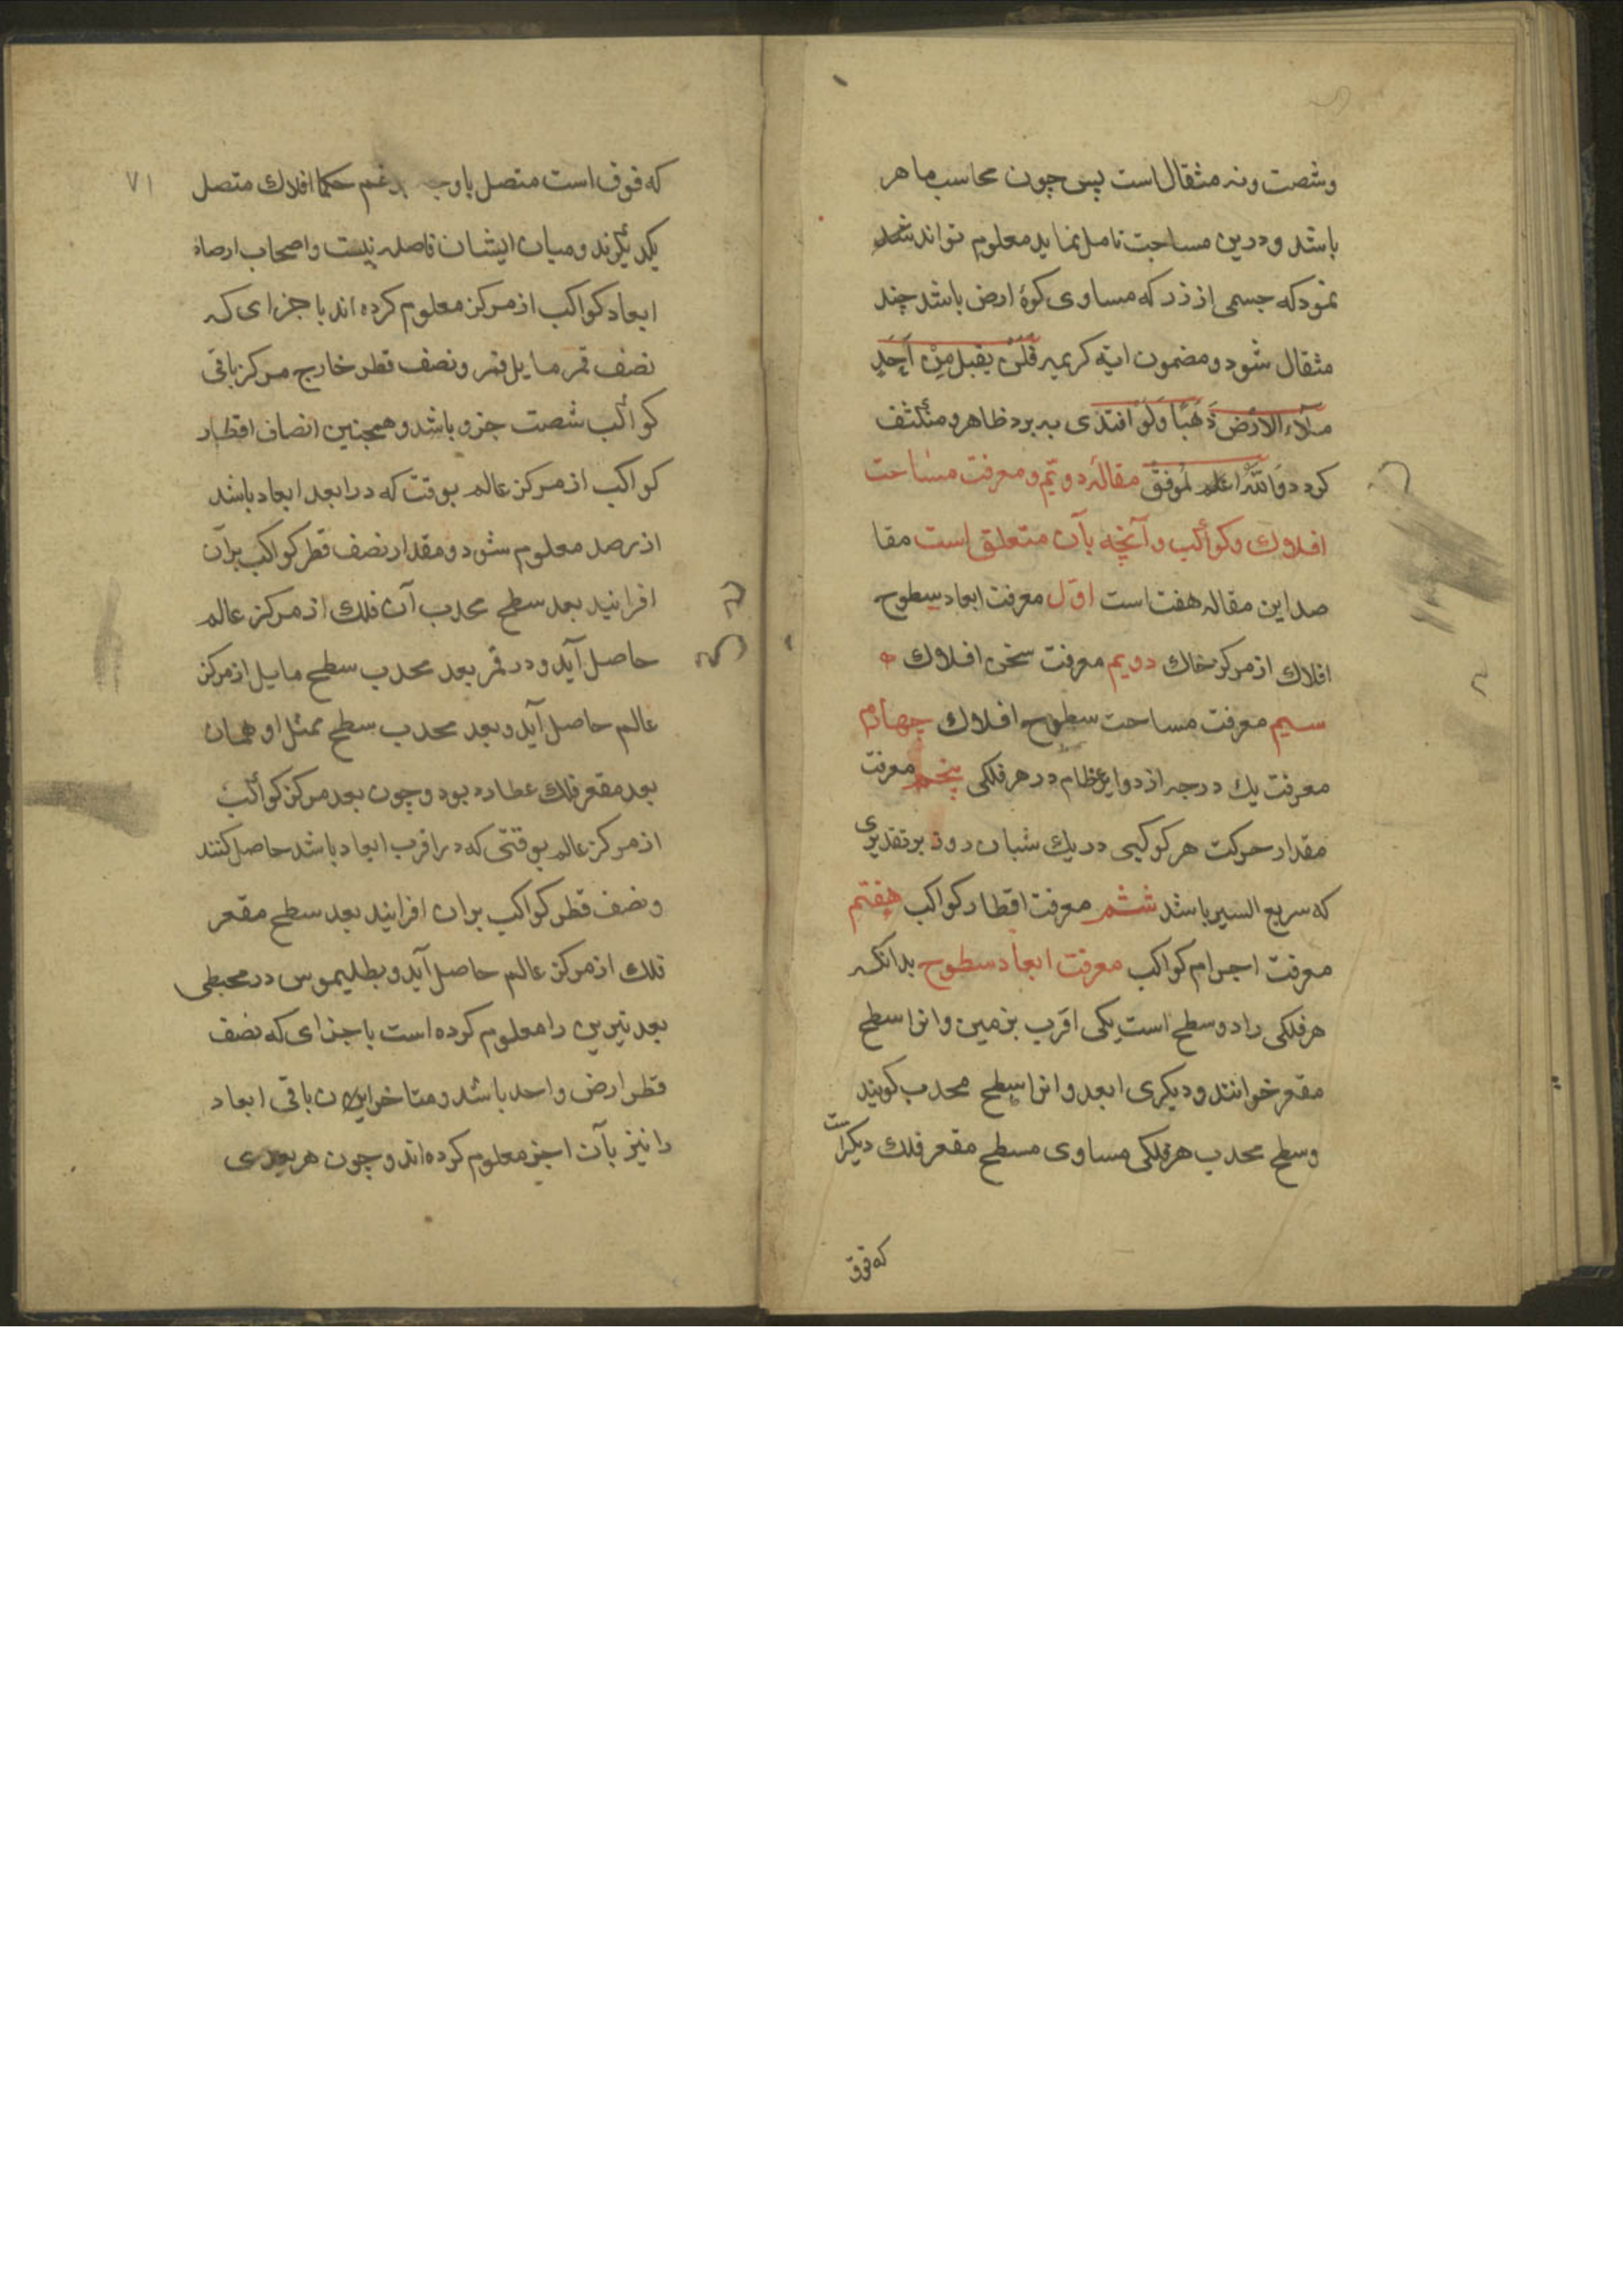 وشصت ونه مثقال است پس چون محاسب ماهر
باشد ودرین مساحت تامل نماید معلوم تواند شد
نمود که جسمی از زر که مساوی کرهٔ ارض باشد چند
مثقال شود ومضمون ایه کریمه فَلَنْ یقبل مِنْ اَحَدِ
مِلَاء الارْضَ ذَهَبًا وَلَوْ افتدی به برد ظاهر ومنکشف
کردد وَاللهُ اعلم مقالهٔ دویم و معرفت مساحت
افلاک وکواکب وآنچه بآن متعلق است مقا
صد این مقاله هفت است اوّل معرفت ابعاد سطوح
افلاک از مرکز خاک دویم معرفت سخن افلاک
سیم معرفت مساحت سطوح افلاک چهارم
معرفت یک درجه از دوایر عظام در هر فلکی پنجم معرفت
مقدار حرکت هر کوکبی در یک شبان روز بر تقدیری
که سریع السیر باشد ششم معرفت اقطار کواکب هفتم
معرفت اجرام کواکب معرفت ابعاد سطوح بدانکه
هر فلکی را دو سطح است یکی اقرب بزمین وانرا سطح
مقعر خوانند ودیکری ابعد وانرا سطح محدب کویند
وسطح محدب هر فلکی مساوی مسطح مقعر فلک دیکر است
که فوق
٧١
که فوق است متصل باو حکما افلاک متصل
یکدیگرند ومیان ایشان فاصله نیست واصحاب ارصاد
ابعاد کواکب از مرکز معلوم کرده اند با جزای که
نصف قمر مایل قمر ونصف قطر خارج مرکز باقی
کواکب شصت جزو باشد وهمچنین انصاف اقطار
کواکب از مرکز عالم بوقت که در ابعد ابعاد باشد
از رصد معلوم شود ومقدار نصف قطر کواکب بر آن
افزانید بعد سطح محدب آن فلک از مرکز عالم
حاصل آید ودر قمر بعد محدب سطح مایل از مرکز
عالم حاصل آید وبعد محدب سطح ممثل او همان
بعد مقعر فلک عطارد بود وچون بعد مرکز کواکب
از مرکز عالم بوقتی که در اقرب ابعاد باشد حاصل کنند
ونصف قطر کواکب بران افزایند بعد سطح مقعر
فلک از مرکز عالم حاصل آید وبطلیموس در مجسطی
بعد نیرین را معلوم کرده است باجزای که نصف
قطر ارض واحد باشد ومتاخراین ان باقی ابعاد
را نیز بآن اجز معلوم کرده اند وچون هر بعدی